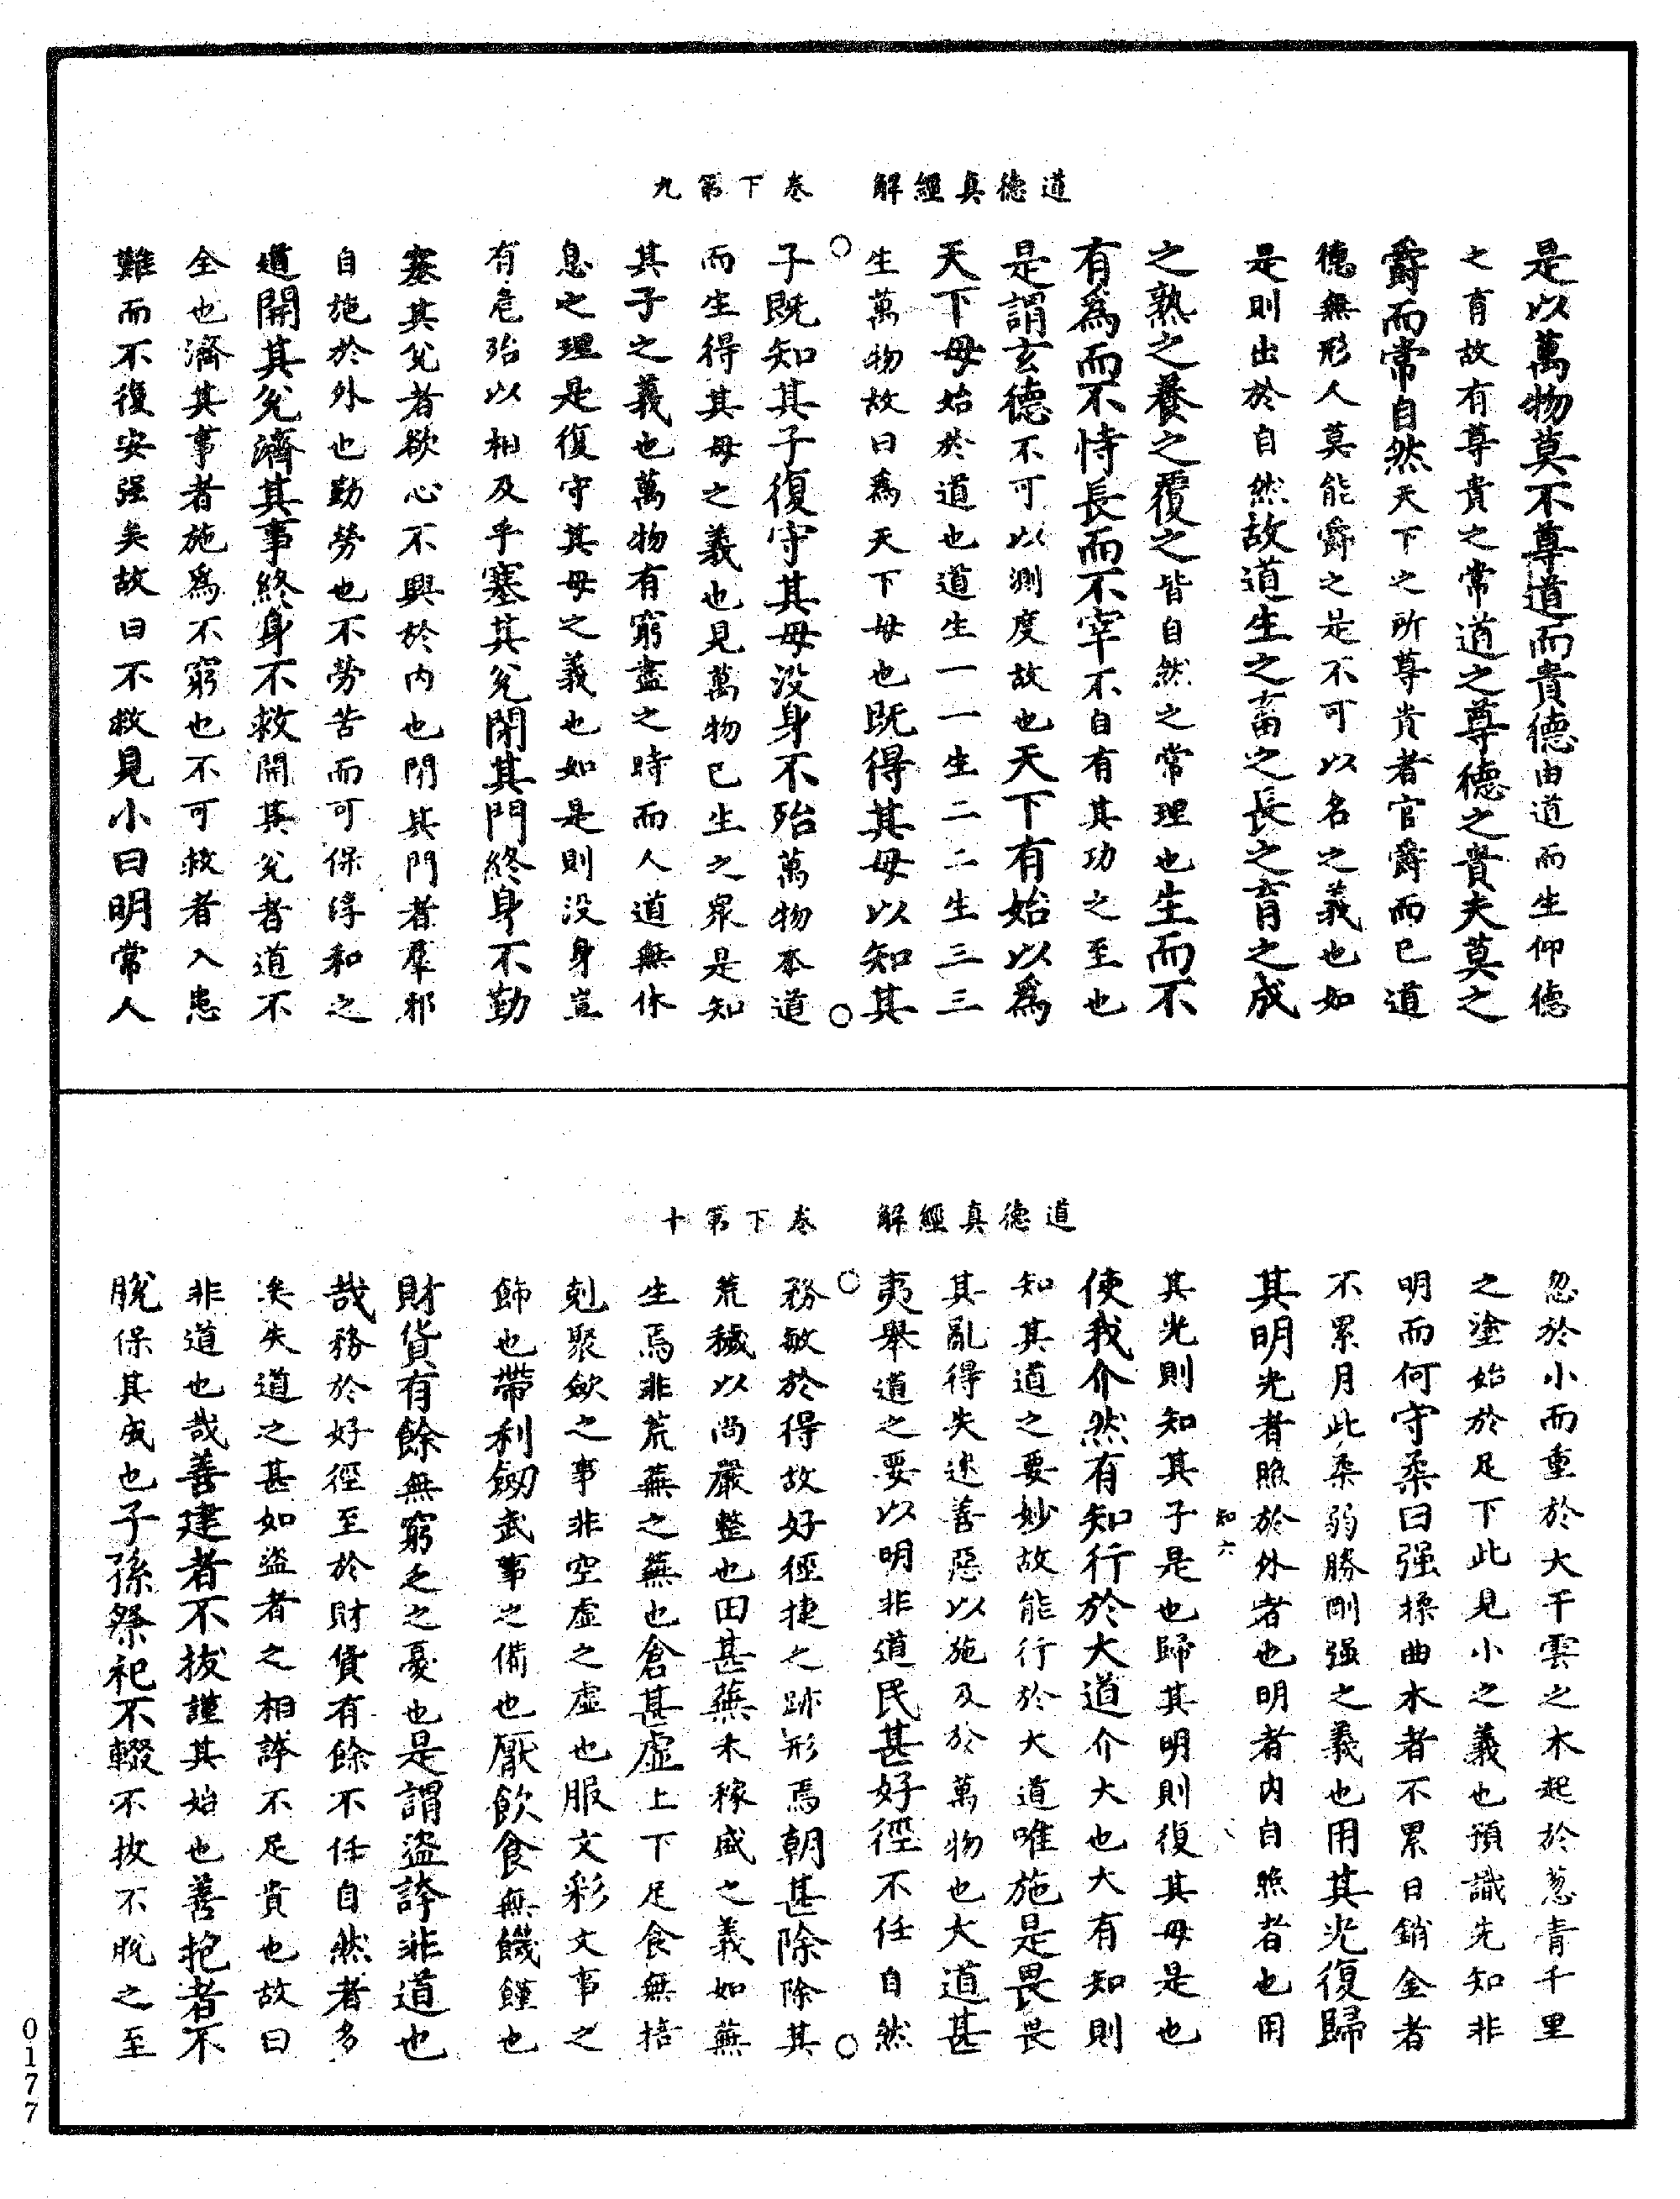 道德真經解　卷下第九
是以萬物莫不尊道而貴德由道而生仰德
之育故有尊貴之常道之尊德之貴夫莫之
爵而常自然天下之所尊貴者官爵而已道
德無形人莫能爵之是不可以名之義也如
是則出於自然故道生之畜之長之育之成
之熟之養之覆之皆自然之常理也生而不
有爲而不恃長而不宰不自有其功之至也
是謂玄德不可以測度故也天下有始以爲
天下母始於道也道生一一生二二生三三
生萬物故曰爲天下母也既得其母以知其
子既知其子復守其母没身不殆萬物本道
而生得其母之義也見萬物已生之衆是知
其子之義也萬物有窮盡之時而人道無休
息之理是復守其母之義也如是則没身豈
有危殆以相及乎塞其兊閉其門終身不勤
塞其兊者欲心不興於内也閉其門者羣邪
自施於外也勤勞也不勞苦而可保淳和之
道開其兊濟其事終身不救開其兊者道不
全也濟其事者施爲不窮也不可救者入患
難而不復安强矣故曰不救見小曰明常人
道德真經解　卷下第十
忽於小而重於大干雲之木起於葱青千里
之塗始於足下此見小之義也預識先知非
明而何守柔曰强揉曲木者不累日銷金者
不累月此柔弱勝剛强之義也用其光復歸
其明光者照於外者也明者内自照者也用
知六
其光則知其子是也歸其明則復其母是也
使我介然有知行於大道介大也大有知則
知其道之要妙故能行於大道唯施是畏畏
其亂得失迷善惡以施及於萬物也大道甚
夷舉道之要以明非道民甚好徑不任自然
務敏於得故好徑捷之跡形焉朝甚除除其
荒穢以尚嚴整也田甚蕪禾稼盛之義如蕪
生焉非荒蕪之蕪也倉甚虚上下足食無掊
剋聚歛之事非空虚之虚也服文彩文事之
飾也帶利劒武事之備也厭飲食無饑饉也
財貨有餘無窮乏之憂也是謂盜誇非道也
哉務於好徑至於財貨有餘不任自然者多
矣失道之甚如盜者之相誇不足貴也故曰
非道也哉善建者不拔謹其始也善抱者不
脫保其成也子孫祭祀不輟不拔不脫之至
0177